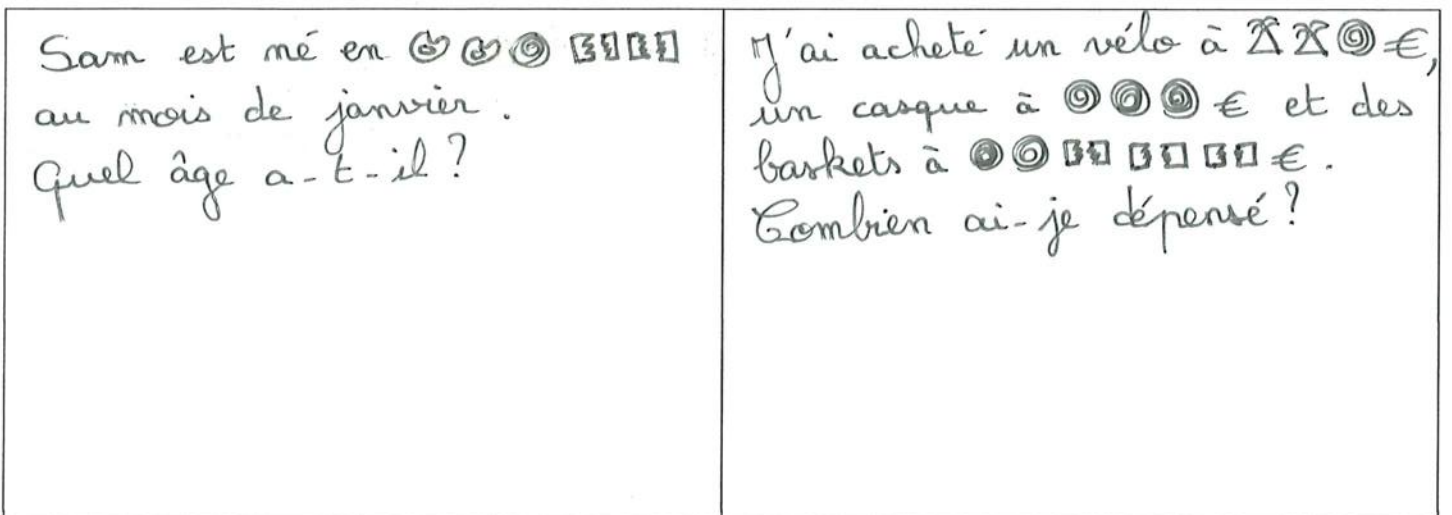 Sam est né en
au mois de janvier.
Quel âge a-t-il?
J'ai acheté un vélo à €,
un casque à € et des
baskets à €.
Combien ai-je dépensé?